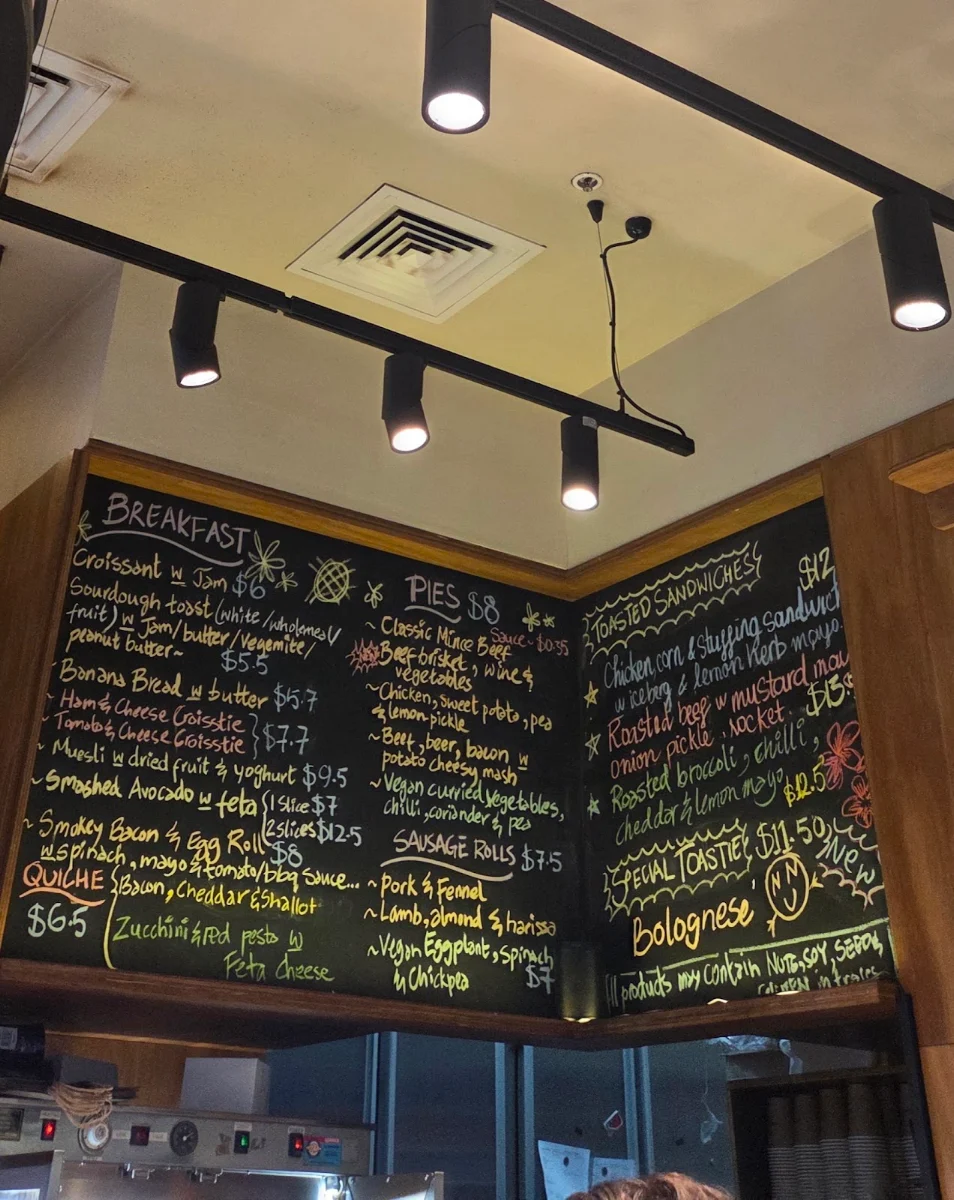 BREAKFAST
Croissant w Jam $6
Sourdough toast (white/wholemeal/
fruit) w Jam/butter/vegemite/
peanut butter~
$5.5
Banana Bread w butter $5.7
~ Ham & Cheese Croisstie
~ Tomato & Cheese Croisstie
$7.7
~ Muesli w dried fruit & yoghurt $9.5
~ Smashed Avocado w feta
1 Slice $7
2 Slices $12.5
~ Smokey Bacon & Egg Roll $8
w spinach, mayo & tomato/bbq sauce...
QUICHE
$6.5
Bacon, Cheddar & Shallot
Zucchini & red pesto w
Feta Cheese
PIES $8
~ Classic Mince Beef
Sauce~ $0.35
Beef brisket, wine &
vegetables
~ Chicken, sweet potato, pea
& lemon pickle
~ Beef, beer, bacon w
potato cheesy mash
~ Vegan curried vegetables,
chilli, coriander & pea
SAUSAGE ROLLS $7.5
~ Pork & Fennel
~ Lamb, almond & harissa
~ Vegan Eggplant, Spinach
& Chickpea $7
TOASTED SANDWICHES
$12
Chicken, corn & Stuffing sandwich
w iceberg & lemon herb mayo.
Roasted beef w mustard
onion pickle, rocket.
Roasted broccoli, chilli,
cheddar & lemon mayo. $12.5
SPECIAL TOASTIE $11.50
NEW
Bolognese
All products may contain NUTS, SOY, SEEDS,
in traces